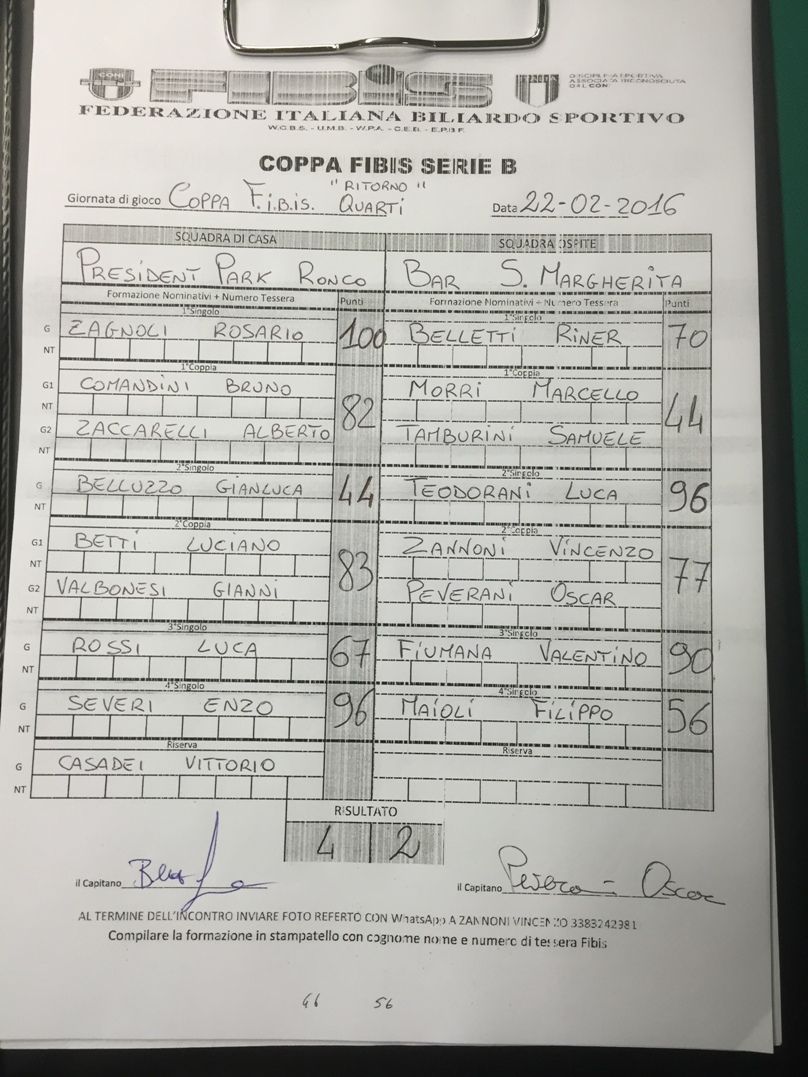 CONI FIBIS DISCIPLINA SPORTIVA
ASSOCIATA RICONOSCIUTA
DAL CONI
FEDERAZIONE ITALIANA BILIARDO SPORTIVO
W.C.B.S. - U.M.B. - W.P.A. - C.E.B. - E.P.B.F.
COPPA FIBIS SERIE B
"RITORNO"
Giornata di gioco COPPA F.I.B.I.S. QUARTI Data 22-02-2016
SQUADRA DI CASA SQUADRA OSPITE
PRESIDENT PARK RONCO BAR S. MARGHERITA
Formazione Nominativi + Numero Tessera Punti Formazione Nominativi + Numero Tessera Punti
1°Singolo 1°Singolo
G ZAGNOLI ROSARIO 100 BELLETTI RINER 70
NT
1°Coppia 1°Coppia
G1 COMANDINI BRUNO MORRI MARCELLO
NT 82 44
G2 ZACCARELLI ALBERTO TAMBURINI SAMUELE
NT
2°Singolo 2°Singolo
G BELLUZZO GIANLUCA 44 TEODORANI LUCA 96
NT
2°Coppia 2°Coppia
G1 BETTI LUCIANO ZANNONI VINCENZO
NT 83 77
G2 VALBONESI GIANNI PEVERANI OSCAR
NT
3°Singolo 3°Singolo
G ROSSI LUCA 67 FIUMANA VALENTINO 90
NT
4°Singolo 4°Singolo
G SEVERI ENZO 96 MAIOLI FILIPPO 56
NT
Riserva Riserva
G CASADEI VITTORIO
NT
RISULTATO
4 2
il Capitano il Capitano Oscar
AL TERMINE DELL'INCONTRO INVIARE FOTO REFERTO CON WhatsApp A ZANNONI VINCENZO 3383242981
Compilare la formazione in stampatello con cognome nome e numero di tessera Fibis
66 56